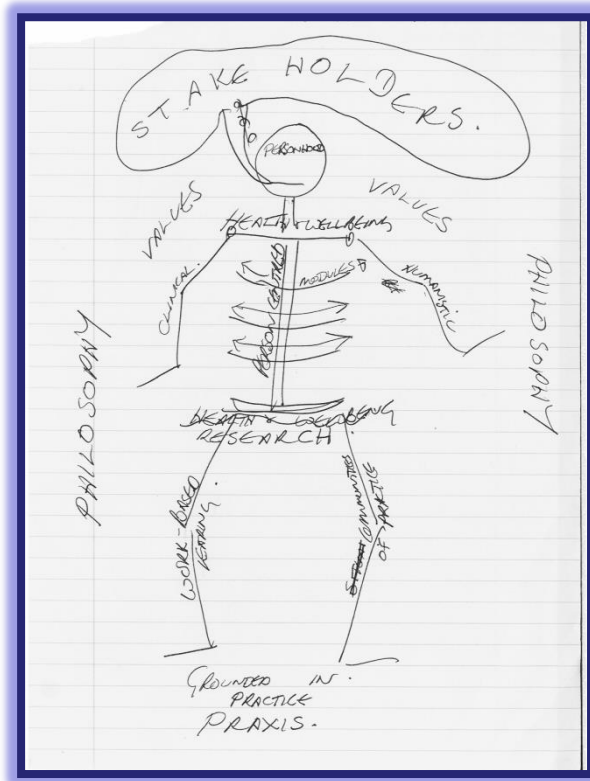 STAKE HOLDERS.
PERSONHOOD
VALUES
VALUES
HEALTH & WELLBEING
CLINICAL.
PERSON CENTRED
MODULES
HUMANISTIC
PHILOSOPHY
PHILOSOPHY
HEALTH & WELLBEING
RESEARCH
WORK-BASED
LEARING.
COMMUNITIES
OF PRACTICE
GROUNDED IN.
PRACTICE
PRAXIS.